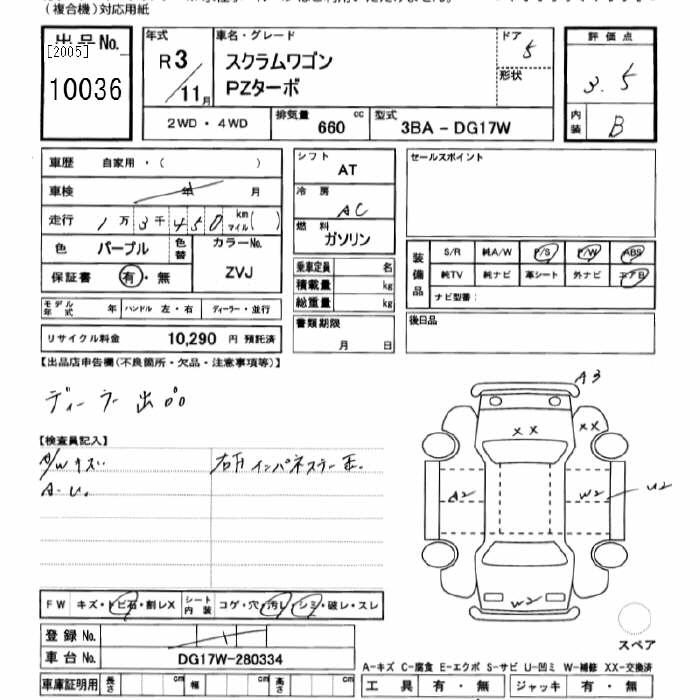 (複合機)対応用紙
出品No.
[2005]
10036
年式
R3/11月
車名・グレード
スクラムワゴン
PZターボ
ドア
5
形状
評価点
3.5
内装
B
2WD・4WD
排気量 660 cc
型式 3BA-DG17W
車歴 自家用・( )
車検 年 月
走行 1万3千450 km マイル( )
色 パープル
色替
カラーNo.
ZVJ
保証書 有・無
モデル年式 年 ハンドル 左・右 ディーラー・並行
リサイクル料金 10,290 円 預託済
シフト
AT
冷房
AC
燃料
ガソリン
乗車定員 名
積載量 kg
総重量 kg
書類期限
月 日
セールスポイント
装備品
S/R 純A/W P/S P/W ABS
純TV 純ナビ 革シート 外ナビ エアB
ナビ型番:
後日品
【出品店申告欄(不良箇所・欠品・注意事項等)】
ディーラー出品
【検査員記入】
A/Wキズ.
A-U.
右Fインパネステー正.
A3
XX
XX
A2
W2
U2
W2
スペア
FW キズ・トビ石・割レX
シート内装 コゲ・穴・汚レ・シミ・破レ・スレ
登録No.
車台No. DG17W-280334
車庫証明用 長さ cm 幅 cm 高さ cm
A-キズ C-腐食 E-エクボ S-サビ U-凹ミ W-補修 XX-交換済
工具 有・無 ジャッキ 有・無